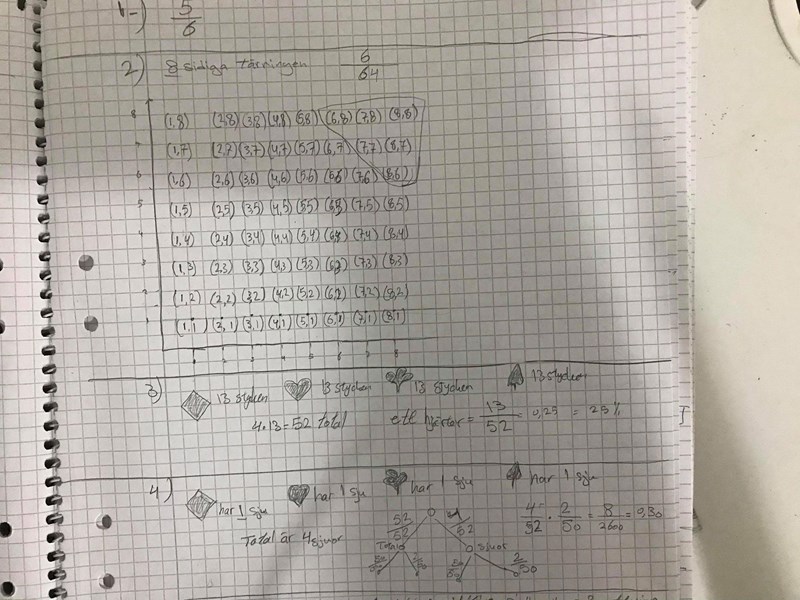 1-) 5/6
2) 8 sidiga tärningen 6/64
8 (1,8) (2,8) (3,8) (4,8) (5,8) (6,8) (7,8) (8,8)
7 (1,7) (2,7) (3,7) (4,7) (5,7) (6,7) (7,7) (8,7)
6 (1,6) (2,6) (3,6) (4,6) (5,6) (7,6) (8,6)
5 (1,5) (2,5) (3,5) (4,5) (5,5) (7,5) (8,5)
4 (1,4) (2,4) (3,4) (4,4) (5,4) (7,4) (8,4)
3 (1,3) (2,3) (3,3) (4,3) (5,3) (7,3) (8,3)
2 (1,2) (2,2) (3,2) (4,2) (5,2) (6,2) (7,2) (8,2)
1 (1,1) (3,1) (4,1) (5,1) (6,1) (7,1) (8,1)
1 2 3 4 5 6 7 8
3) 13 stycken 13 stycken 13 stycken 13 stycken
4·13=52 total ett hjärter = 13/52 = 0,25 = 25%
4) har 1 sju har 1 sju har 1 sju har 1 sju
Total är 4 sjuor
52/52 /52
sjuor
2/50
4/52 · 2/50 = 8/2600 = 0,30